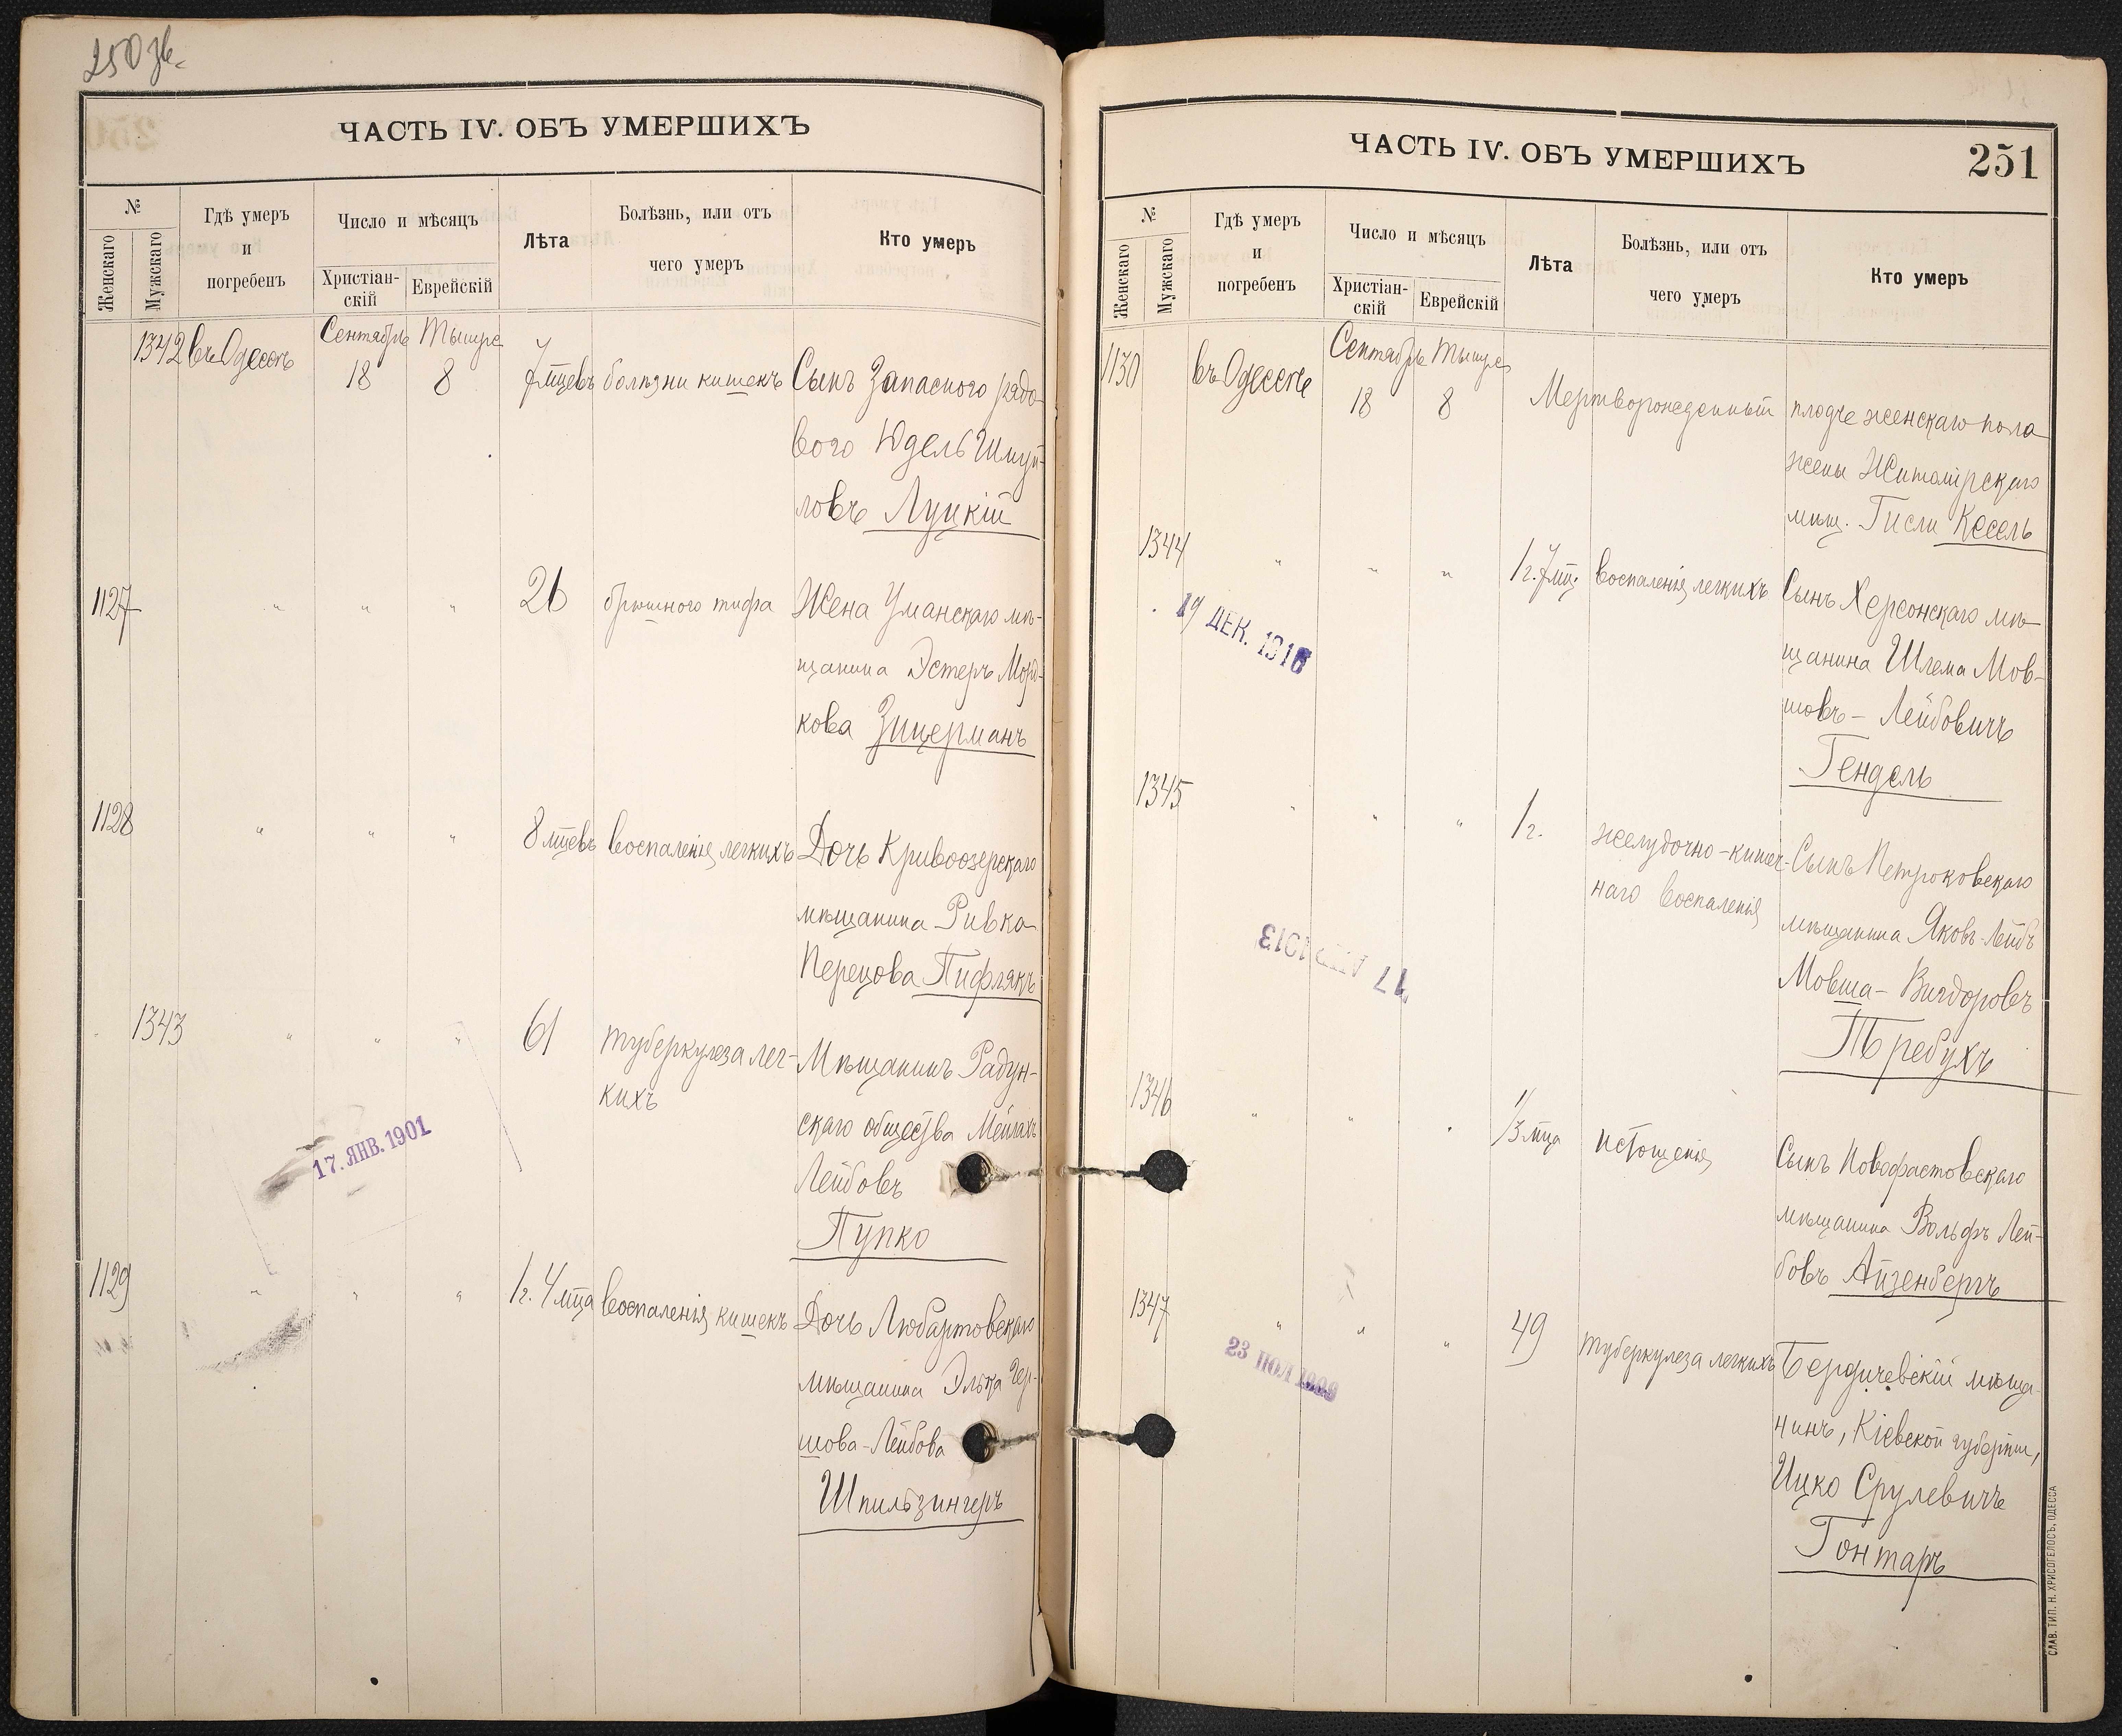 250 зв.
ЧАСТЬ IV. ОБЪ УМЕРШИХЪ
№
Женскаго
Мужскаго
Гдѣ умеръ
и
погребенъ
Число и мѣсяцъ
Христіан-
скій
Еврейскій
Лѣта
Болѣзнь, или отъ
чего умеръ
Кто умеръ
1342 въ Одессѣ Сентябрь 18 Тышре 8 7 мцевъ болѣзни кишекъ Сынъ Запасного рядо-
вого Юдель Шмуй-
ловъ Луцкій
1127 " " " 26 брюшного тифа Жена Уманскаго мѣ-
щанина Эстеръ Морд-
кова Зицерманъ
1128 " " " 8 мцевъ воспаленія легкихъ Дочь Кривоозерскаго
мѣщанина Ривка
Перецова Пифлякъ
1343 " " " 61 туберкулеза лег- Мѣщанинъ Радун-
кихъ
скаго общества
Лейбовъ
Пупко
17. ЯНВ. 1901
1129 " " " 1 г. 4 мца воспаленія кишекъ Дочь Любартовскаго
мѣщанина Элька Гер-
шова-Лейбова
Шпильзингеръ
ЧАСТЬ IV. ОБЪ УМЕРШИХЪ
251
№
Женскаго
Мужскаго
Гдѣ умеръ
и
погребенъ
Число и мѣсяцъ
Христіан-
скій
Еврейскій
Лѣта
Болѣзнь, или отъ
чего умеръ
Кто умеръ
1130 въ Одессѣ Сентябрь 18 Тышре 8 Мертворожденный плодъ женскаго пола
жены Житомірскаго
мѣщ. Гисли Кесель
1344 " " " 1 г. 7 мц. воспаленія легкихъ Сынъ Херсонскаго мѣ-
щанина Шлема Мов-
шовъ-Лейбовичъ
Гендель
ДЕК. 1916
1345 " " " 1 г. желудочно-кишеч- Сынъ Петроковскаго
наго воспаленія
мѣщанина Яковъ-Лейбъ
Мовша-Вигдоровъ
Требухъ
17 АПР 1913
1346 " " " 1/3 мца истощенія Сынъ Новофастовскаго
мѣщанина Вольфъ Лей-
бовъ Айзенбергъ
1347 " " " 49 туберкулеза легкихъ Бердичевскій мѣща-
нинъ, Кіевской губерніи,
Ицко Срулевичъ
Гонтаръ
23 ІЮЛ 1909
СЛАВ. ТИП. Н. ХРИСОГЕЛОСЪ, ОДЕССА